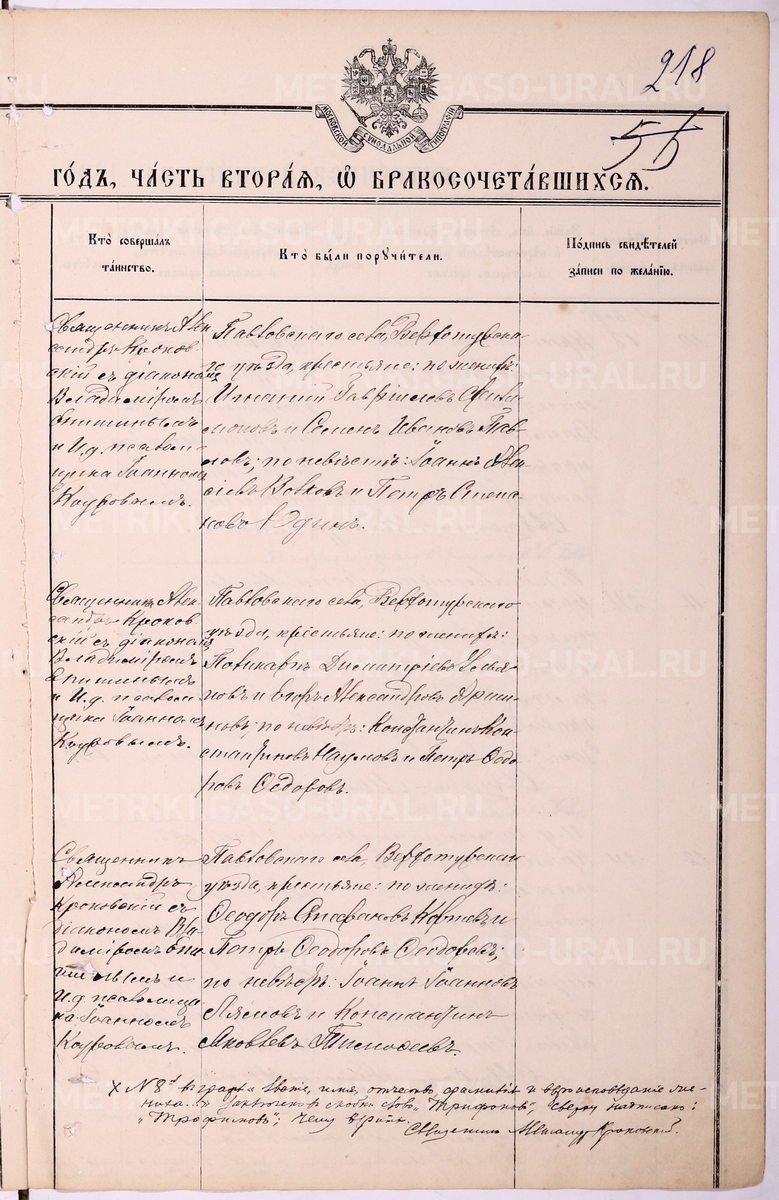 218
55
МОСКОВСКОЙ СѴНОДАЛЬНОЙ ТИПОГРАФІИ
ГО́ДЪ, ЧА́СТЬ ВТОРА́Я, Ѡ҆ БРАКОСОЧЕТА́ВШИХСЯ.
Кто̀ соверша́лъ
та́инство.
Кто̀ бы́ли порꙋчи́тели.
По́дпись свидѣ́телей
за́писи по жела́нію.
Священникъ Алек-
сандръ Кроков
скій съ діакономъ
Владиміромъ
и И.д. псалом
щика Іоанномъ
Кауровымъ.
Павловскаго села, Верхотурска
го уѣзда, крестьяне: по женихѣ:
Игнатій Гавріиловъ Фили
моновъ и Семенъ Ивановъ Пав-
ловъ; по невѣстѣ: Іоаннъ Алек
сіевъ Волковъ и Петръ Степа
новъ Юдинъ.
Священникъ Алек-
сандръ Кроков
скій съ діакономъ
Владиміромъ
и И.д. псалом
щика Іоанномъ
Кауровымъ.
Павловскаго села, Верхотурскаго
уѣзда, крестьяне: по женихѣ:
Поликарпъ Димитріевъ Улья
новъ и Егоръ Александровъ
по невѣстѣ: Константинъ Кон
стантиновъ Наумовъ и Петръ Ѳеодо
ровъ Ѳедоровъ.
Священникъ
Александръ
Кроковскій съ
діакономъ Вла
диміромъ
и
И.д. псаломщи
ка Іоанномъ
Кауровымъ.
Павловскаго села, Верхотурскаго
уѣзда, крестьяне: по женихѣ:
Ѳеодоръ Стефановъ и
Петръ Ѳеодоровъ Ѳеодоровъ;
по невѣстѣ: Іоаннъ Іоанновъ
и Константинъ
Яковлевъ Тимофеевъ.
X № 8й въ графѣ имя, отчество, фамилія и вѣроисповѣданіе же-
ниха слово „Трифоновъ", сверху написано:
„Трофимовъ"; чему вѣрить. Священникъ Александръ Кроковскій.
METRIKI.GASO-URAL.RU